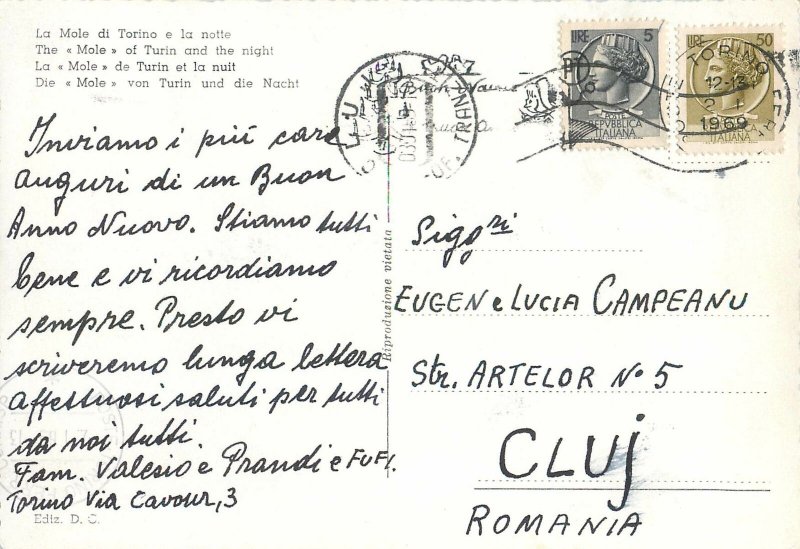 La Mole di Torino e la notte
The « Mole » of Turin and the night
La « Mole » de Turin et la nuit
Die « Mole » von Turin und die Nacht
LIRE 5
POSTE
REPVBBLICA
ITALIANA
LIRE 50
ITALIANA
TORINO
12-13
2 . I
1969
Inviamo i più cari
auguri di un Buon
Anno Nuovo. Stiamo tutti
bene e vi ricordiamo
sempre. Presto vi
scriveremo lunga lettera
affettuosi saluti per tutti
da noi tutti.
Fam. Valesio e Prandi e FUFI.
Torino Via Cavour, 3
Ediz. D. C.
Riproduzione vietata
Sigg.ri
EUGEN e LUCIA CAMPEANU
Str. ARTELOR N° 5
CLUJ
ROMANIA